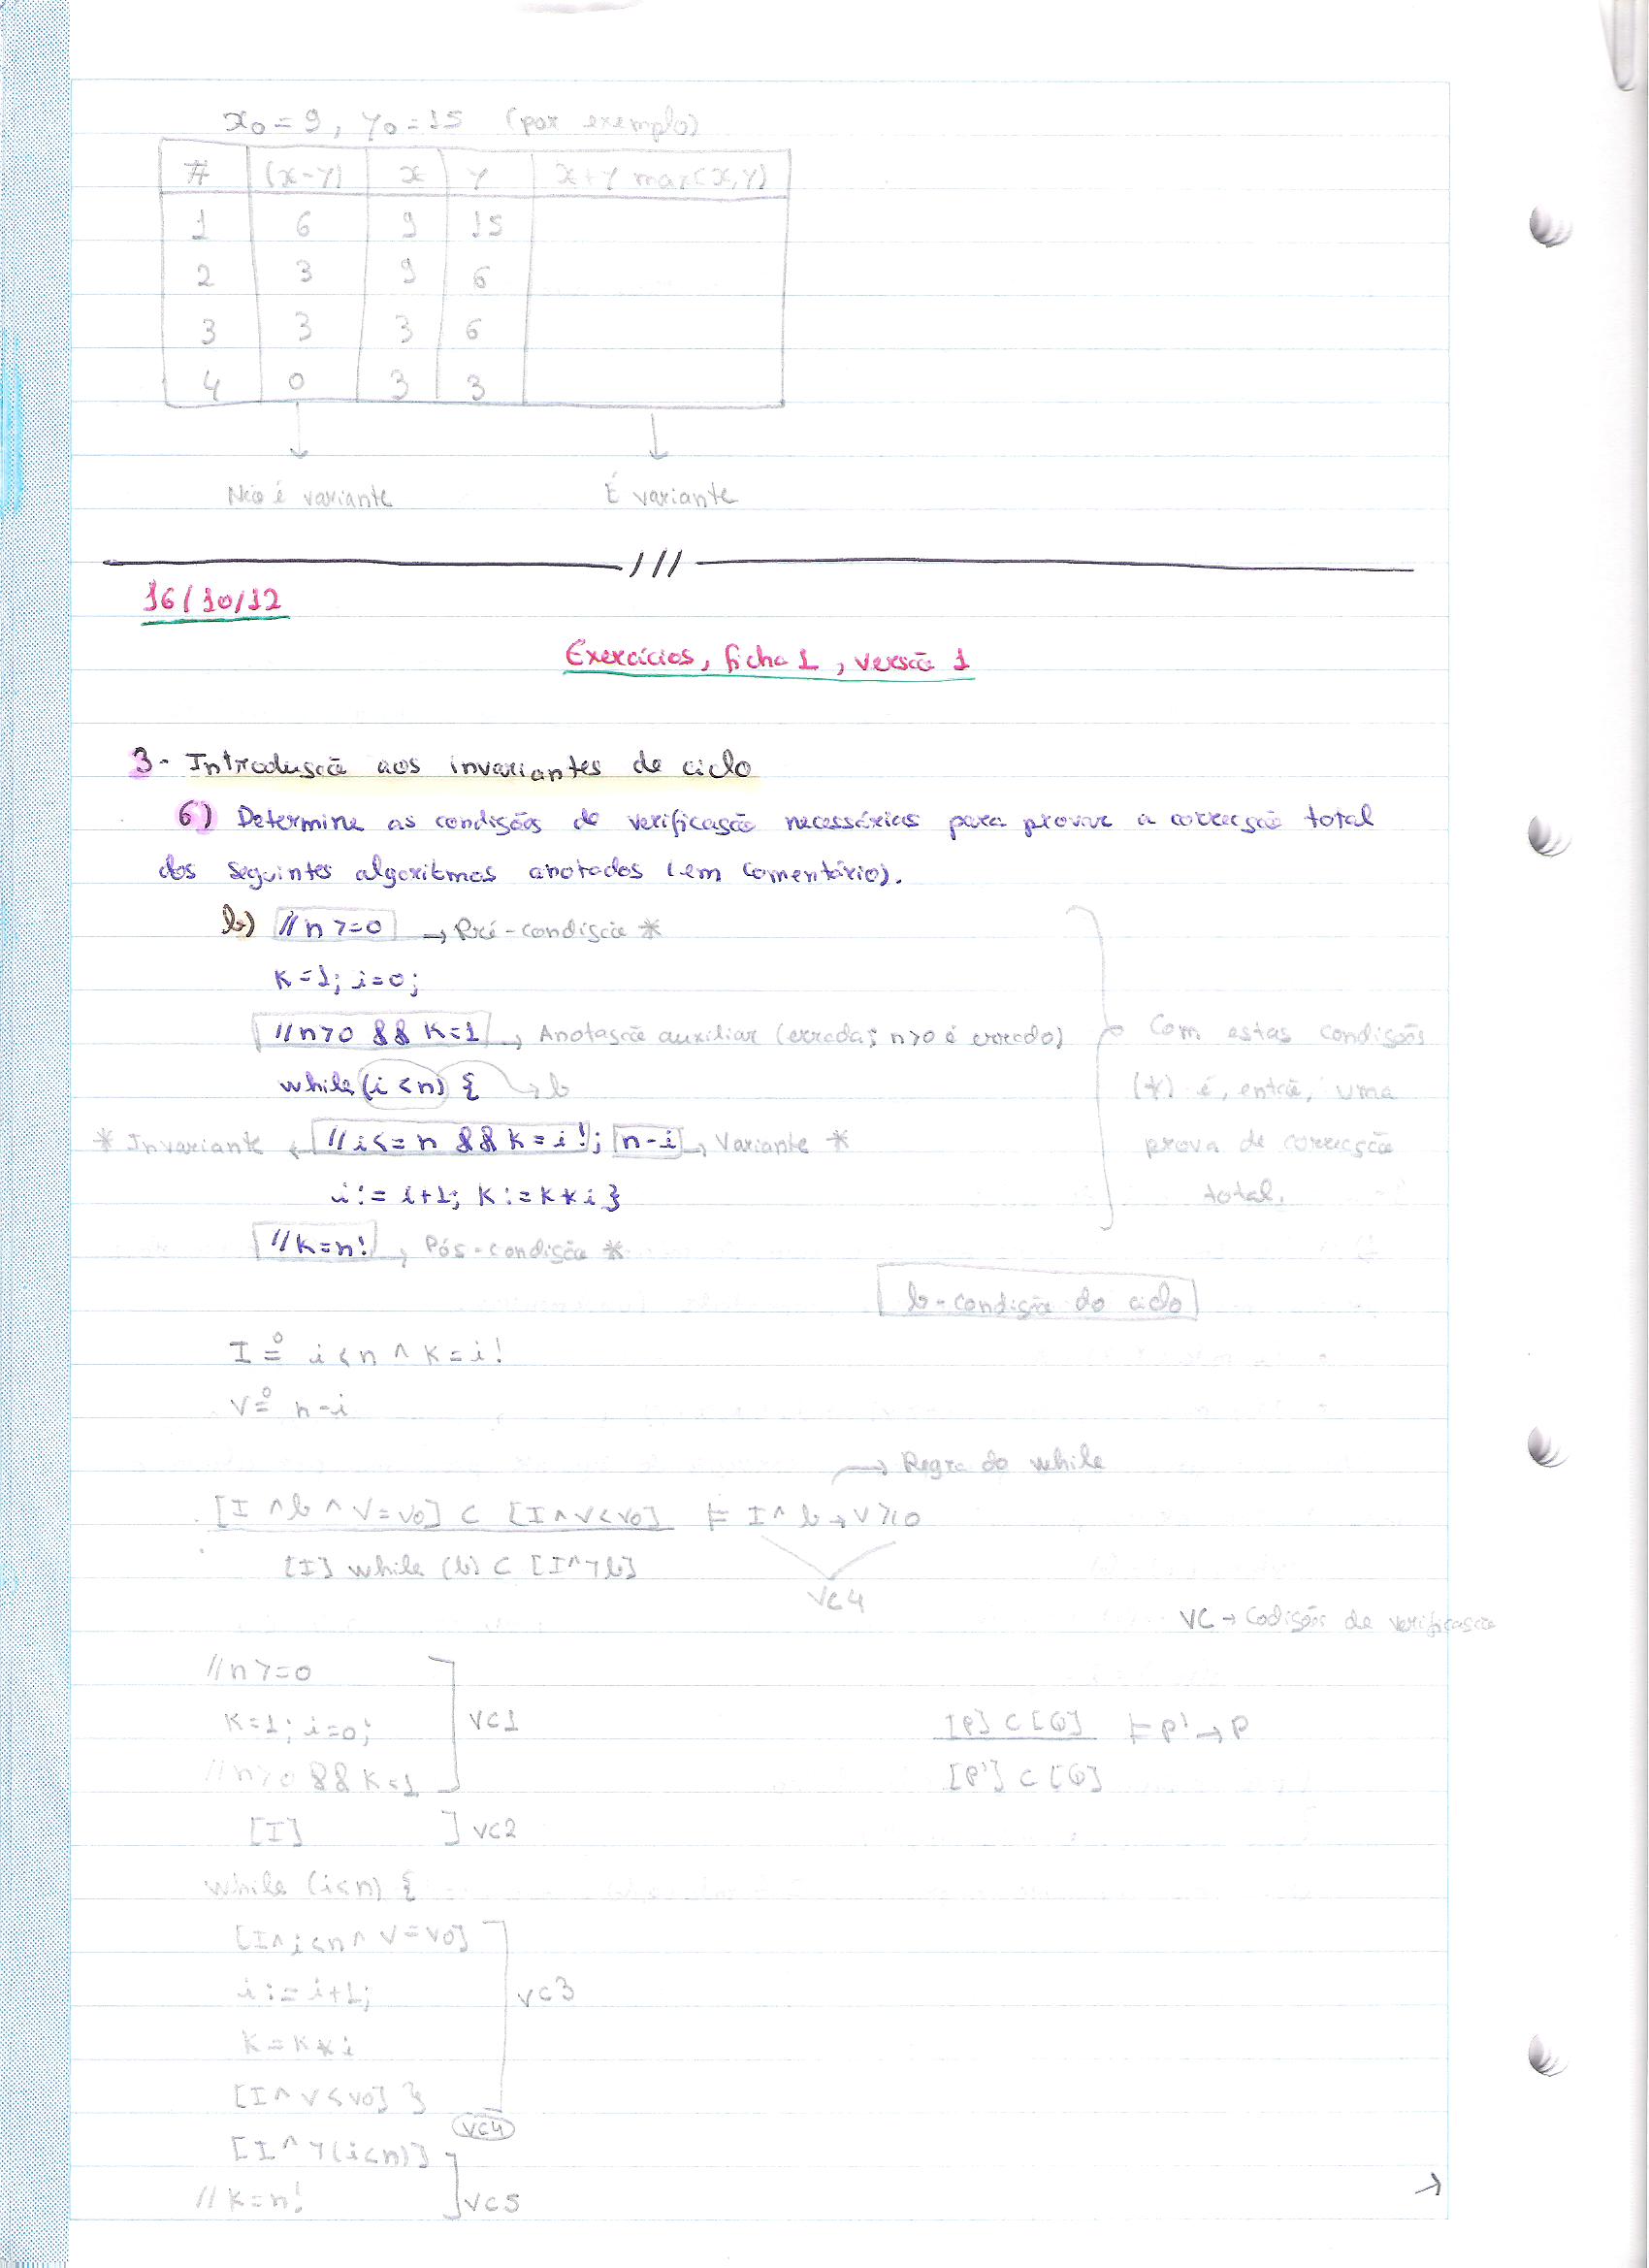 x₀ = 9, y₀ = 15 (por exemplo)
# (x-y) x y x+y max(x,y)
1 6 9 15
2 3 9 6
3 3 3 6
4 0 3 3
Não é variante É variante
16/10/12
Exercícios, ficha 1, versão 1
3- Introdução aos invariantes de ciclo
6) Determine as condições de verificação necessárias para provar a correcção total
dos seguintes algoritmos anotados (em comentário).
b) // n >= 0 → Pré-condição *
K = 1; i = 0;
// n > 0 && K = 1 → Anotação auxiliar (errada; n>0 é errado) → Com estas condições
while (i < n) { → b (*) é, então, uma
* Invariante ← // i <= n && K = i!; n-i → Variante * prova de correcção
i := i+1; K := K * i } total.
// K = n! → Pós-condição *
b - condição do ciclo
I ≗ i < n ∧ K = i!
V ≗ n - i
→ Regra do while
[I ∧ b ∧ V = v0] C [I ∧ V < v0] ⊨ I ∧ b → V ≥ 0
[I] while (b) C [I ∧ ¬b]
VC4
VC → Codições de verificação
// n >= 0
K = 1; i = 0; VC1 [P] C [Q] ⊨ P' → P
// n > 0 && K = 1 [P'] C [Q]
[I] ] VC2
while (i < n) {
[I ∧ i < n ∧ V = v0]
i := i+1; VC3
K = K * i
[I ∧ V < v0] }
VC4
[I ∧ ¬(i < n)]
// K = n! VC5